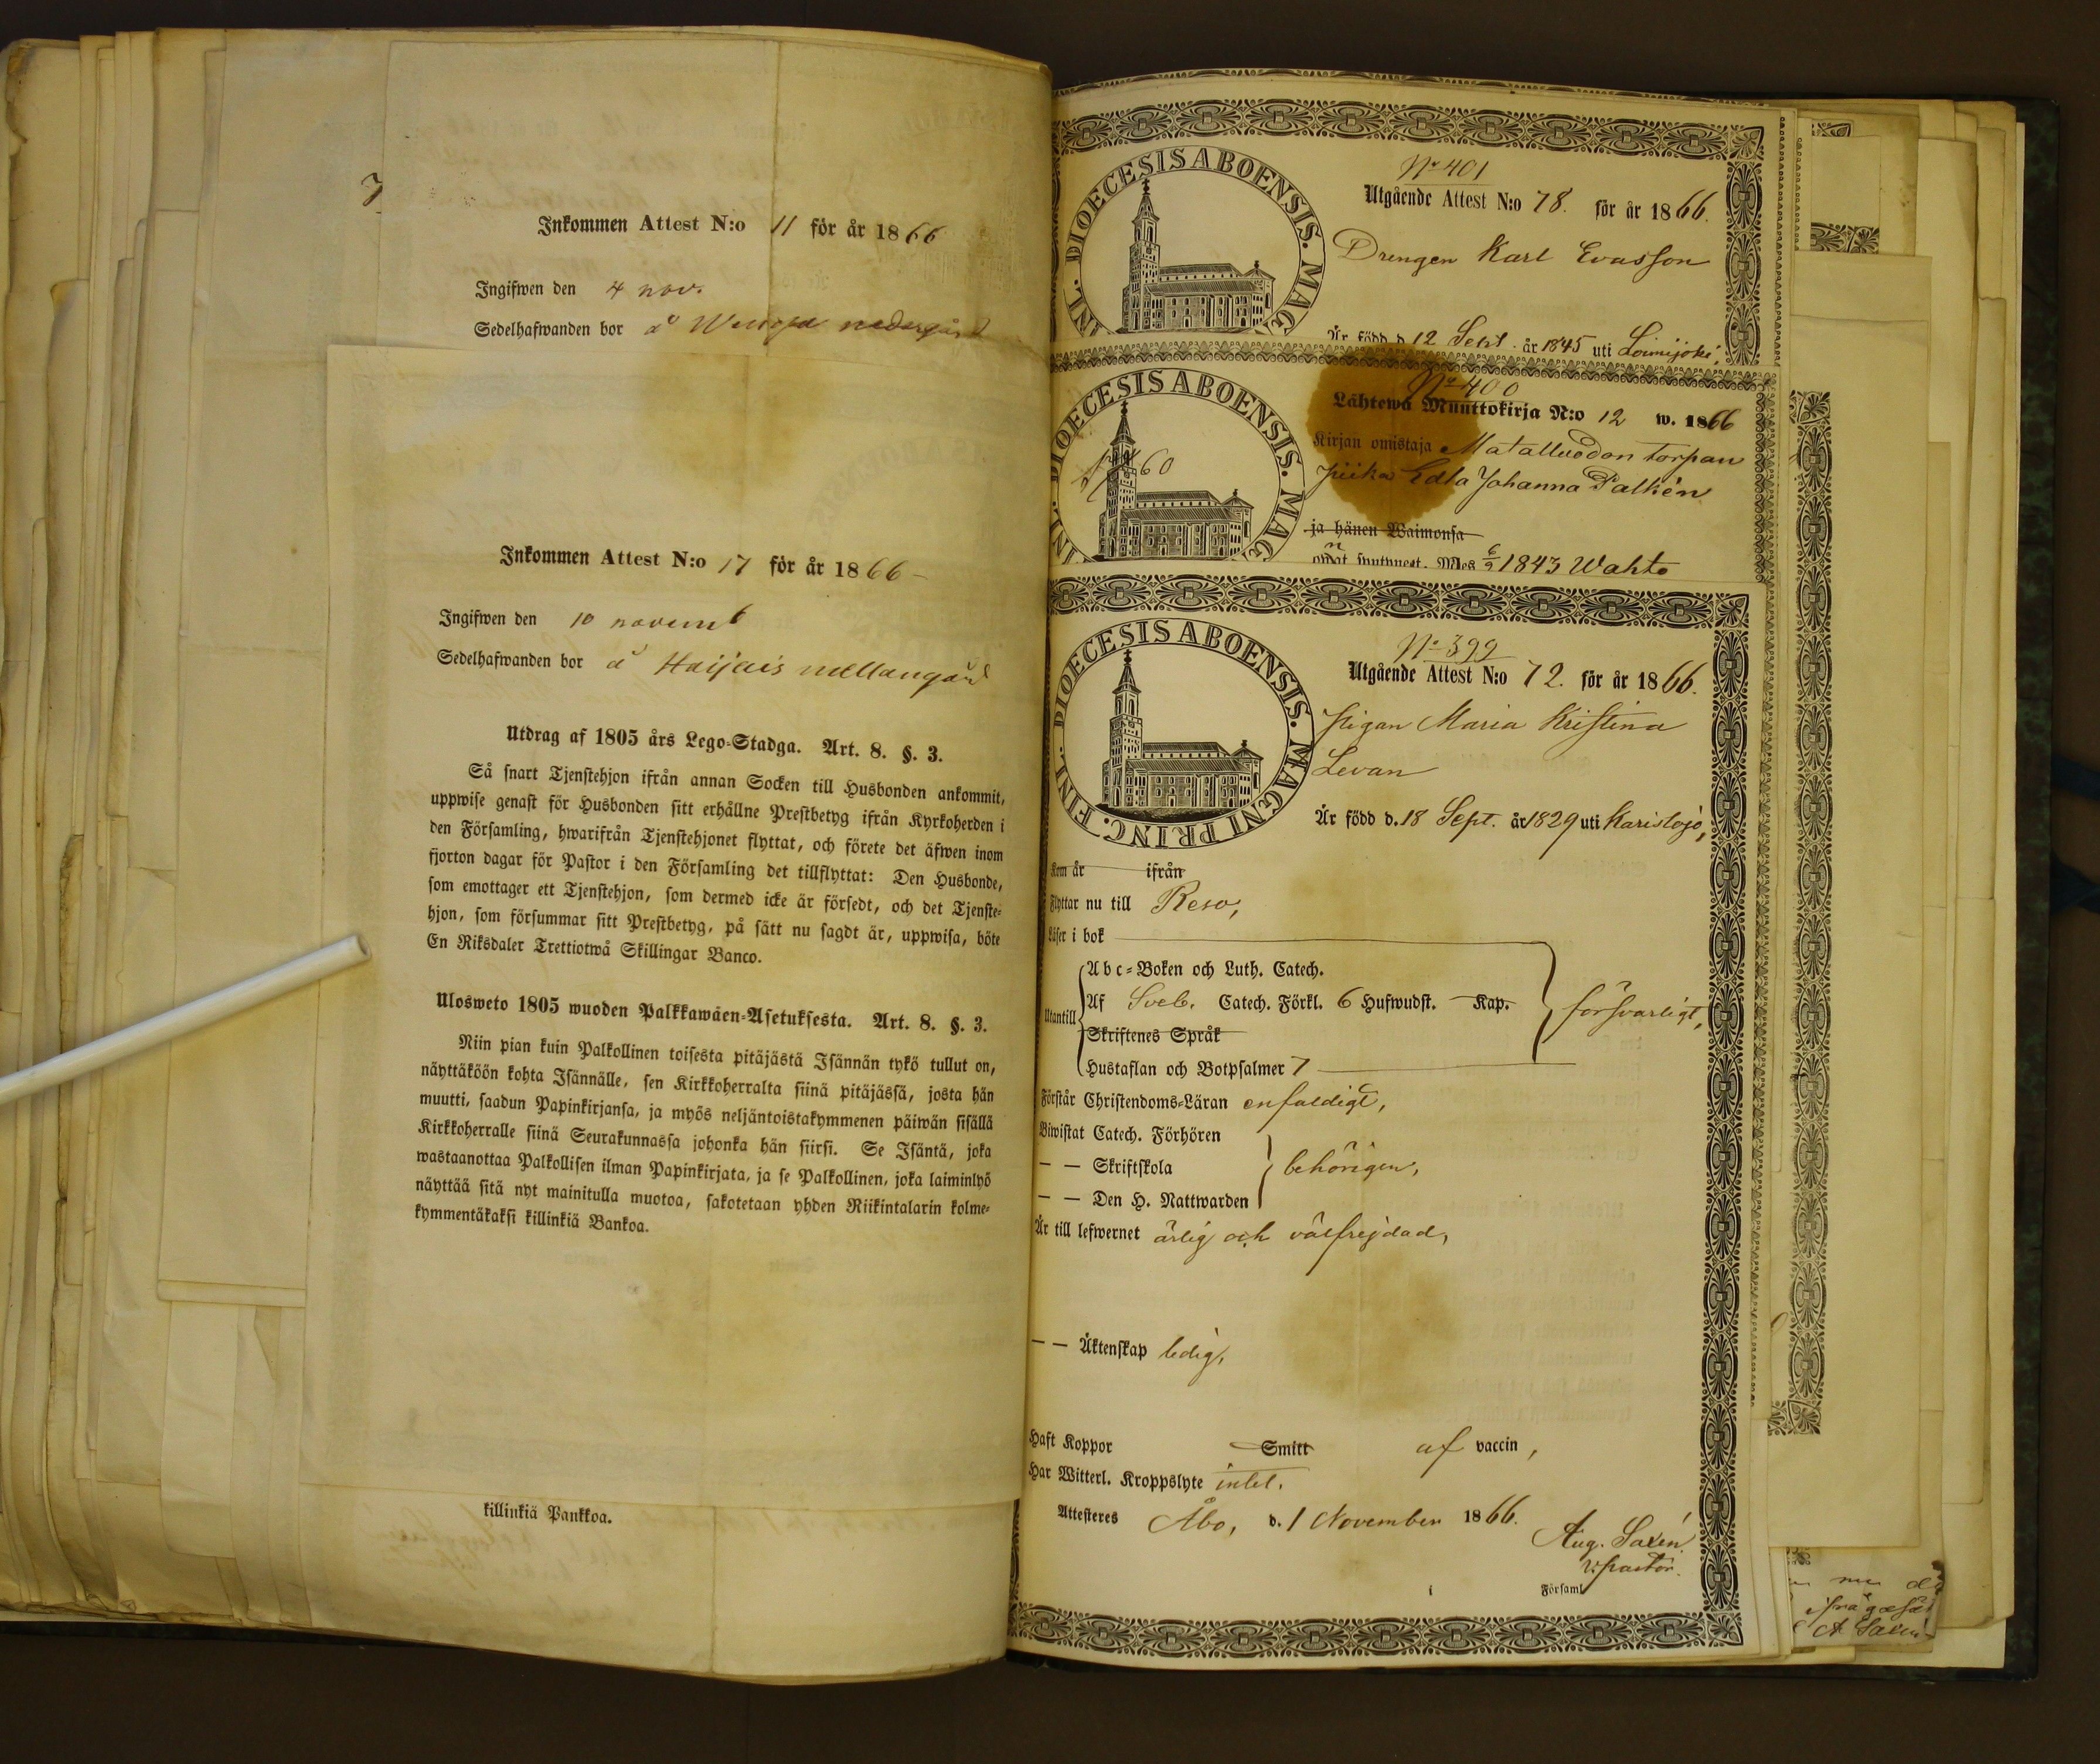 Inkommen Attest N:o 11 för år 1866
Ingifwen den 4 nov.
Sedelhafwanden bor å nedergård
Inkommen Attest N:o 17 för år 1866
Ingifwen den 10 novemb
Sedelhafwanden bor å Haijais mellangård
Utdrag af 1805 års Lego-Stadga. Art. 8. §. 3.
Så snart Tjenstehjon ifrån annan Socken till Husbonden ankommit,
uppwise genast för Husbonden sitt erhållne Prestbetyg ifrån Kyrkoherden i
den Församling, hwarifrån Tjenstehjonet flyttat, och förete det äfwen inom
fjorton dagar för Pastor i den Församling det tillflyttat: Den Husbonde,
som emottager ett Tjenstehjon, som dermed icke är försedt, och det Tjenste-
hjon, som försummar sitt Prestbetyg, på sätt nu sagdt är, uppwisa, böte
En Riksdaler Trettiotwå Skillingar Banco.
Ulosweto 1805 wuoden Palkkawäen-Asetuksesta. Art. 8. §. 3.
Niin pian kuin Palkollinen toisesta pitäjästä Isännän tykö tullut on,
näyttäköön kohta Isännälle, sen Kirkkoherralta siinä pitäjässä, josta hän
muutti, saadun Papinkirjansa, ja myös neljäntoistakymmenen päiwän sisällä
Kirkkoherralle siinä Seurakunnassa johonka hän siirsi. Se Isäntä, joka
wastaanottaa Palkollisen ilman Papinkirjata, ja se Palkollinen, joka laiminlyö
näyttää sitä nyt mainitulla muotoa, sakotetaan yhden Riikintalarin kolme-
kymmentäkaksi killinkiä Bankoa.
killinkiä Pankkoa.
FINL. DIOECESIS ABOENSIS. MAG
No 401
Utgående Attest N:o 78. för år 1866.
Drengen Karl Evasson
Är född d 12 Sept. år 1845 uti Loimijoki.
FINL. DIOECESIS ABOENSIS. MAG
60
No 400
Lähtewä Muuttokirja N:o 12 w. 1866
Kirjan omistaja Matalluodon torpan
piika Edla Johanna Palkén
ja hänen Waimonsa
1843 Wahto
DIOECESIS ABOENSIS. MAGNI PRINC. FINL.
No 399
Utgående Attest N:o 72. för år 1866.
Pigan Maria Kristina
Levan
Är född d. 18 Sept. år 1829 uti Karislojo,
Kom år ifrån
Flyttar nu till Reso,
Läser i bok
Abc-Boken och Luth. Catech.
Utantill Af Sveb. Catech. Förkl. 6 Hufwudst. Kap. försvarligt,
Skriftenes Språk
Hustaflan och Botpsalmer 7
Förstår Christendoms-Läran enfaldigt,
Biwistat Catech. Förhören
— — Skriftskola behörigen,
— — Den H. Nattwarden
Är till lefwernet ärlig och välfrejdad,
— — Äktenskap ledig,
Haft Koppor Smitt af vaccin,
Har Witterl. Kroppslyte intet.
Attesteras Åbo, d. 1 November 1866.
Aug. Saxén.
v. pastor.
i Församl
A Saxén